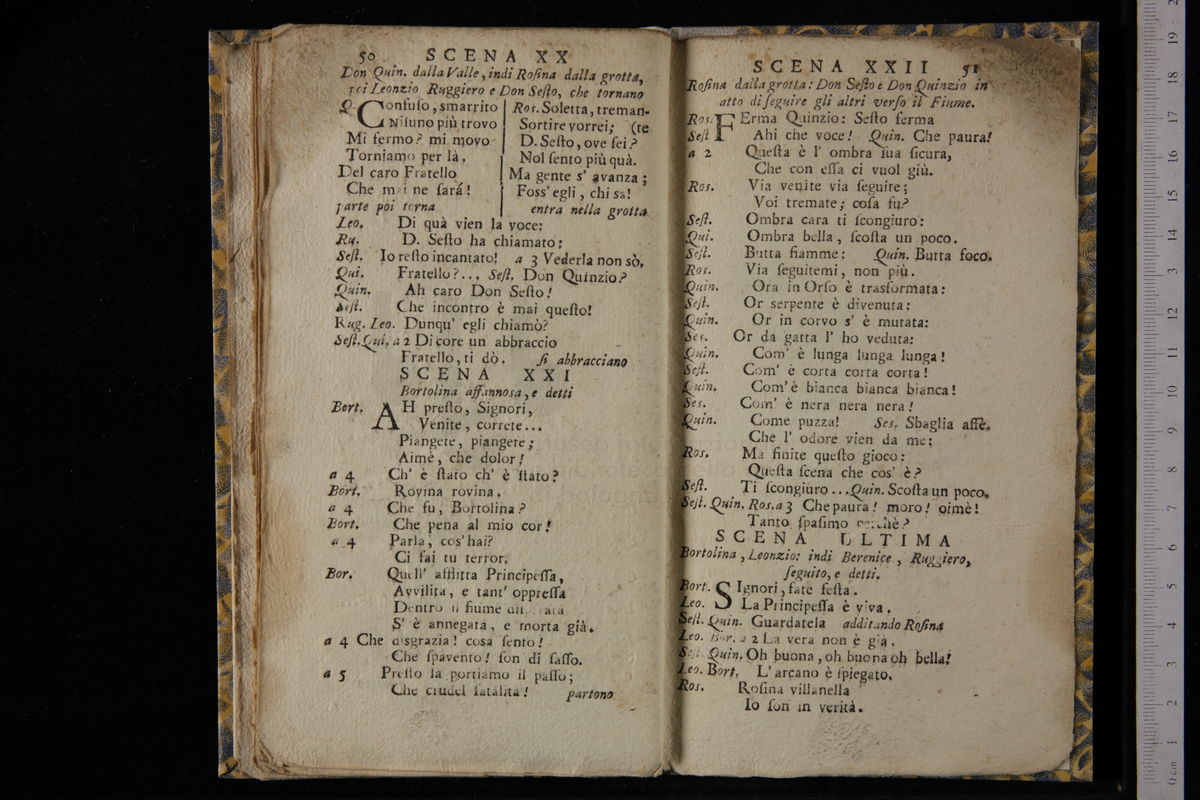 50 SCENA XX
Don Quin. dalla Valle, indi Roſina dalla grotta,
poi Leonzio Ruggiero e Don Seſto, che tornano
Q. Confuſo, smarrito
Niſuno più trovo
Mi fermo? mi movo
Torniamo per là.
Del caro Fratello
Che mai ne ſará!
parte poi torna
Ros. Soletta, treman-
Sortire vorrei; (te
D. Seſto, ove ſei?
Nol ſento più quà.
Ma gente s' avanza;
Foss' egli, chi sa!
entra nella grotta
Leo. Di quà vien la voce:
Ru. D. Seſto ha chiamato:
Seſt. Io reſto incantato! a 3 Vederla non sò.
Qui. Fratello?... Seſt. Don Quinzio?
Quin. Ah caro Don Seſto!
Seſt. Che incontro è mai queſto!
Rug. Leo. Dunqu' egli chiamò?
Seſt. Qui. a 2 Di core un abbraccio
Fratello, ti dò. ſi abbracciano
SCENA XXI
Bortolina affannosa, e detti
Bort. AH preſto, Signori,
Venite, correte...
Piangete, piangete;
Aimè, che dolor!
a 4 Ch' è ſtato ch' è ſtato?
Bort. Rovina rovina.
a 4 Che fu, Bortolina?
Bort. Che pena al mio cor!
a 4 Parla, cos' hai?
Ci fai tu terror.
Bor. Quell' afflitta Principeſſa,
Avvilita, e tant' oppreſſa
Dentro il fiume
S' è annegata, e morta già.
a 4 Che disgrazia! cosa ſento!
Che ſpavento! ſon di ſaſſo.
a 5 Preſto la portiamo il paſſo;
Che crudel fatalità! partono
SCENA XXII 51
Roſina dalla grotta: Don Seſto e Don Quinzio in
atto di ſeguire gli altri verſo il Fiume.
Ros. FErma Quinzio: Seſto ferma
Seſt Ahi che voce! Quin. Che paura!
a 2 Queſta è l' ombra ſua ſicura,
Che con eſſa ci vuol giù.
Ros. Via venite via ſeguite;
Voi tremate; coſa fu?
Seſt. Ombra cara ti ſcongiuro:
Qui. Ombra bella, ſcoſta un poco.
Seſt. Butta fiamme: Quin. Butta foco.
Ros. Via ſeguitemi, non più.
Quin. Ora in Orſo è trasformata:
Seſt. Or serpente è divenuta:
Quin. Or in corvo s' è mutata:
Ses. Or da gatta l' ho veduta:
Quin. Com' è lunga lunga lunga!
Seſt. Com' è corta corta corta!
Quin. Com' è bianca bianca bianca!
Ses. Com' è nera nera nera!
Quin. Come puzza! Ses. Sbaglia aſſè.
Che l' odore vien da me;
Ros. Ma finite queſto gioco:
Queſta ſcena che cos' è?
Seſt. Ti ſcongiuro... Quin. Scoſta un poco.
Seſt. Quin. Ros. a 3 Che paura! moro! oimè!
Tanto ſpaſimo perchè?
SCENA ULTIMA
Bortolina, Leonzio: indi Berenice, Ruggiero,
ſeguito, e detti.
Bort. SIgnori, fate feſta.
Leo. La Principeſſa è viva.
Seſt. Quin. Guardatela additando Roſina
Leo. Bor. a 2 La vera non è già.
Seſt. Quin. Oh buona, oh buona oh bella!
Leo. Bort. L' arcano è ſpiegato.
Ros. Roſina villanella
Io ſon in verità.